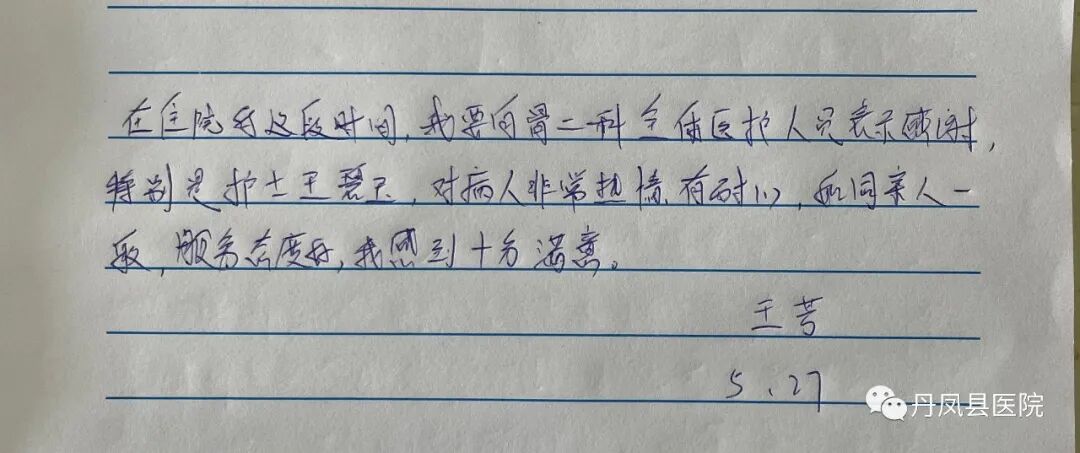 在住院的这段时间,我要向骨二科全体医护人员表示感谢,
特别是护士王碧玉,对病人非常热情有耐心,如同亲人一
般,服务态度好,我感到十分满意。
王芳
5.27
丹凤县医院